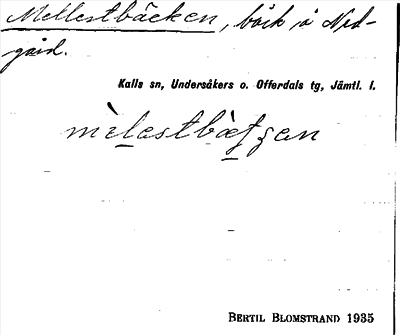 Mellestbäcken, bäck å Ned-
gård.
Kalls sn, Undersåkers o. Offerdals tg, Jämtl. l.
mèlestbætʒen
BERTIL BLOMSTRAND 1935